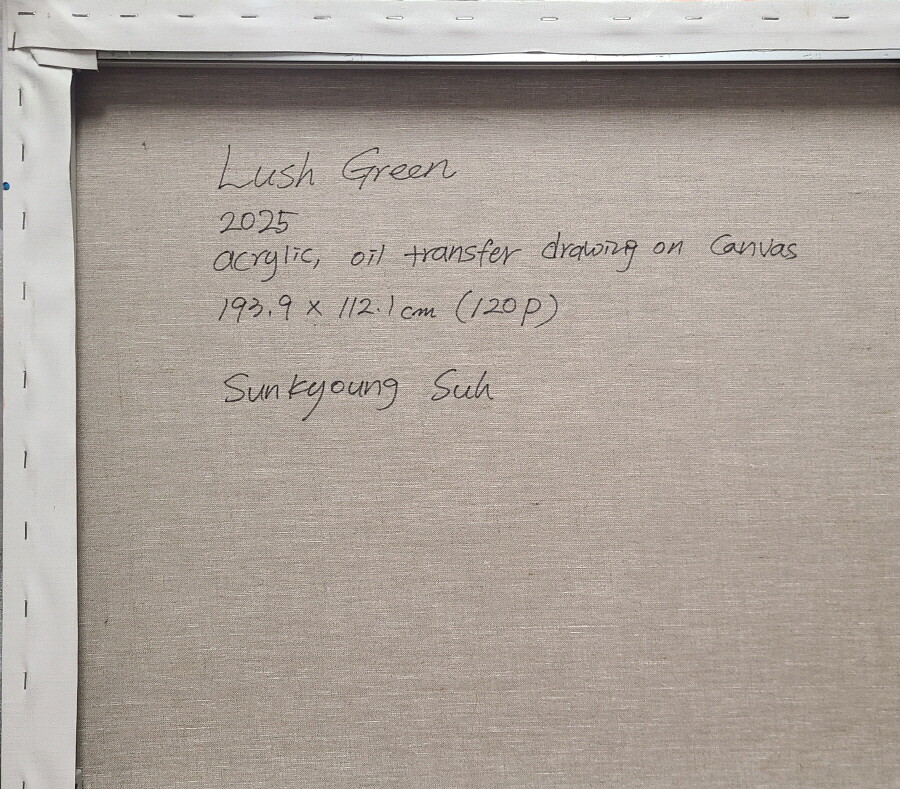 Lush Green
2025
acrylic, oil transfer drawing on Canvas
193.9 x 112.1 cm (120P)
Sunkyoung Suh